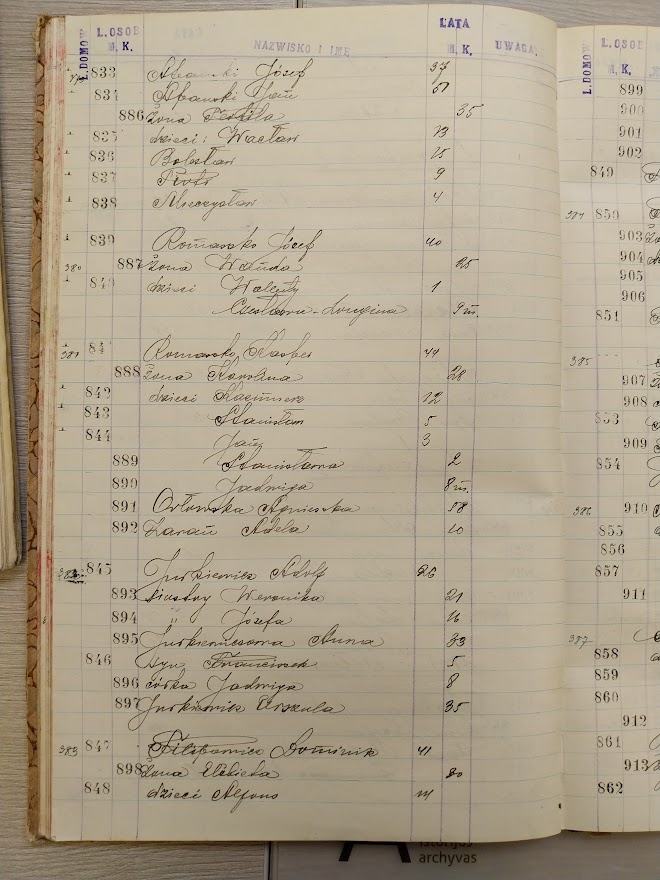 L. DOMÓW L. OSÓB M. K. NAZWISKO I IMIĘ LATA M. K. UWAGA:
833 Abanski Józef 37
834 Abanski Jan 61
886 żona Teofila 35
835 dzieci: Wacław 13
836 Bolesław 15
837 Piotr 9
838 Mieczysław 4
839 Romaszko Józef 40
380 887 żona Wanda 25
840 dzieci Walenty 1
Czesława-Longina 9 m.
381 Romaszko Kasper 44
888 żona Karolina 28
842 dzieci Kazimierz 12
843 Stanisław 5
844 Jan 3
889 Stanisława 2
890 Jadwiga 8 m.
891 Orłowska Agnieszka 58
892 Adela 10
845 Jurkiewicz Adolf 26
893 siostry Weronika 21
894 " Józefa 16
895 Jurkiewiczowa Anna 33
846 syn Franciszek 5
896 córka Jadwiga 8
897 Jurkiewicz Urszula 35
383 847 Dominik 41
898 żona Elżbieta 30
848 dzieci Alfons 14
L. DOMÓW L. OSÓB M. K.
899
900
901
902
849
384 850
903
904
905
906
851
385
907
908
853
909
854
386 910
855
856
857
911
387
858
859
860
912
861
913
862
istorijos
archyvas